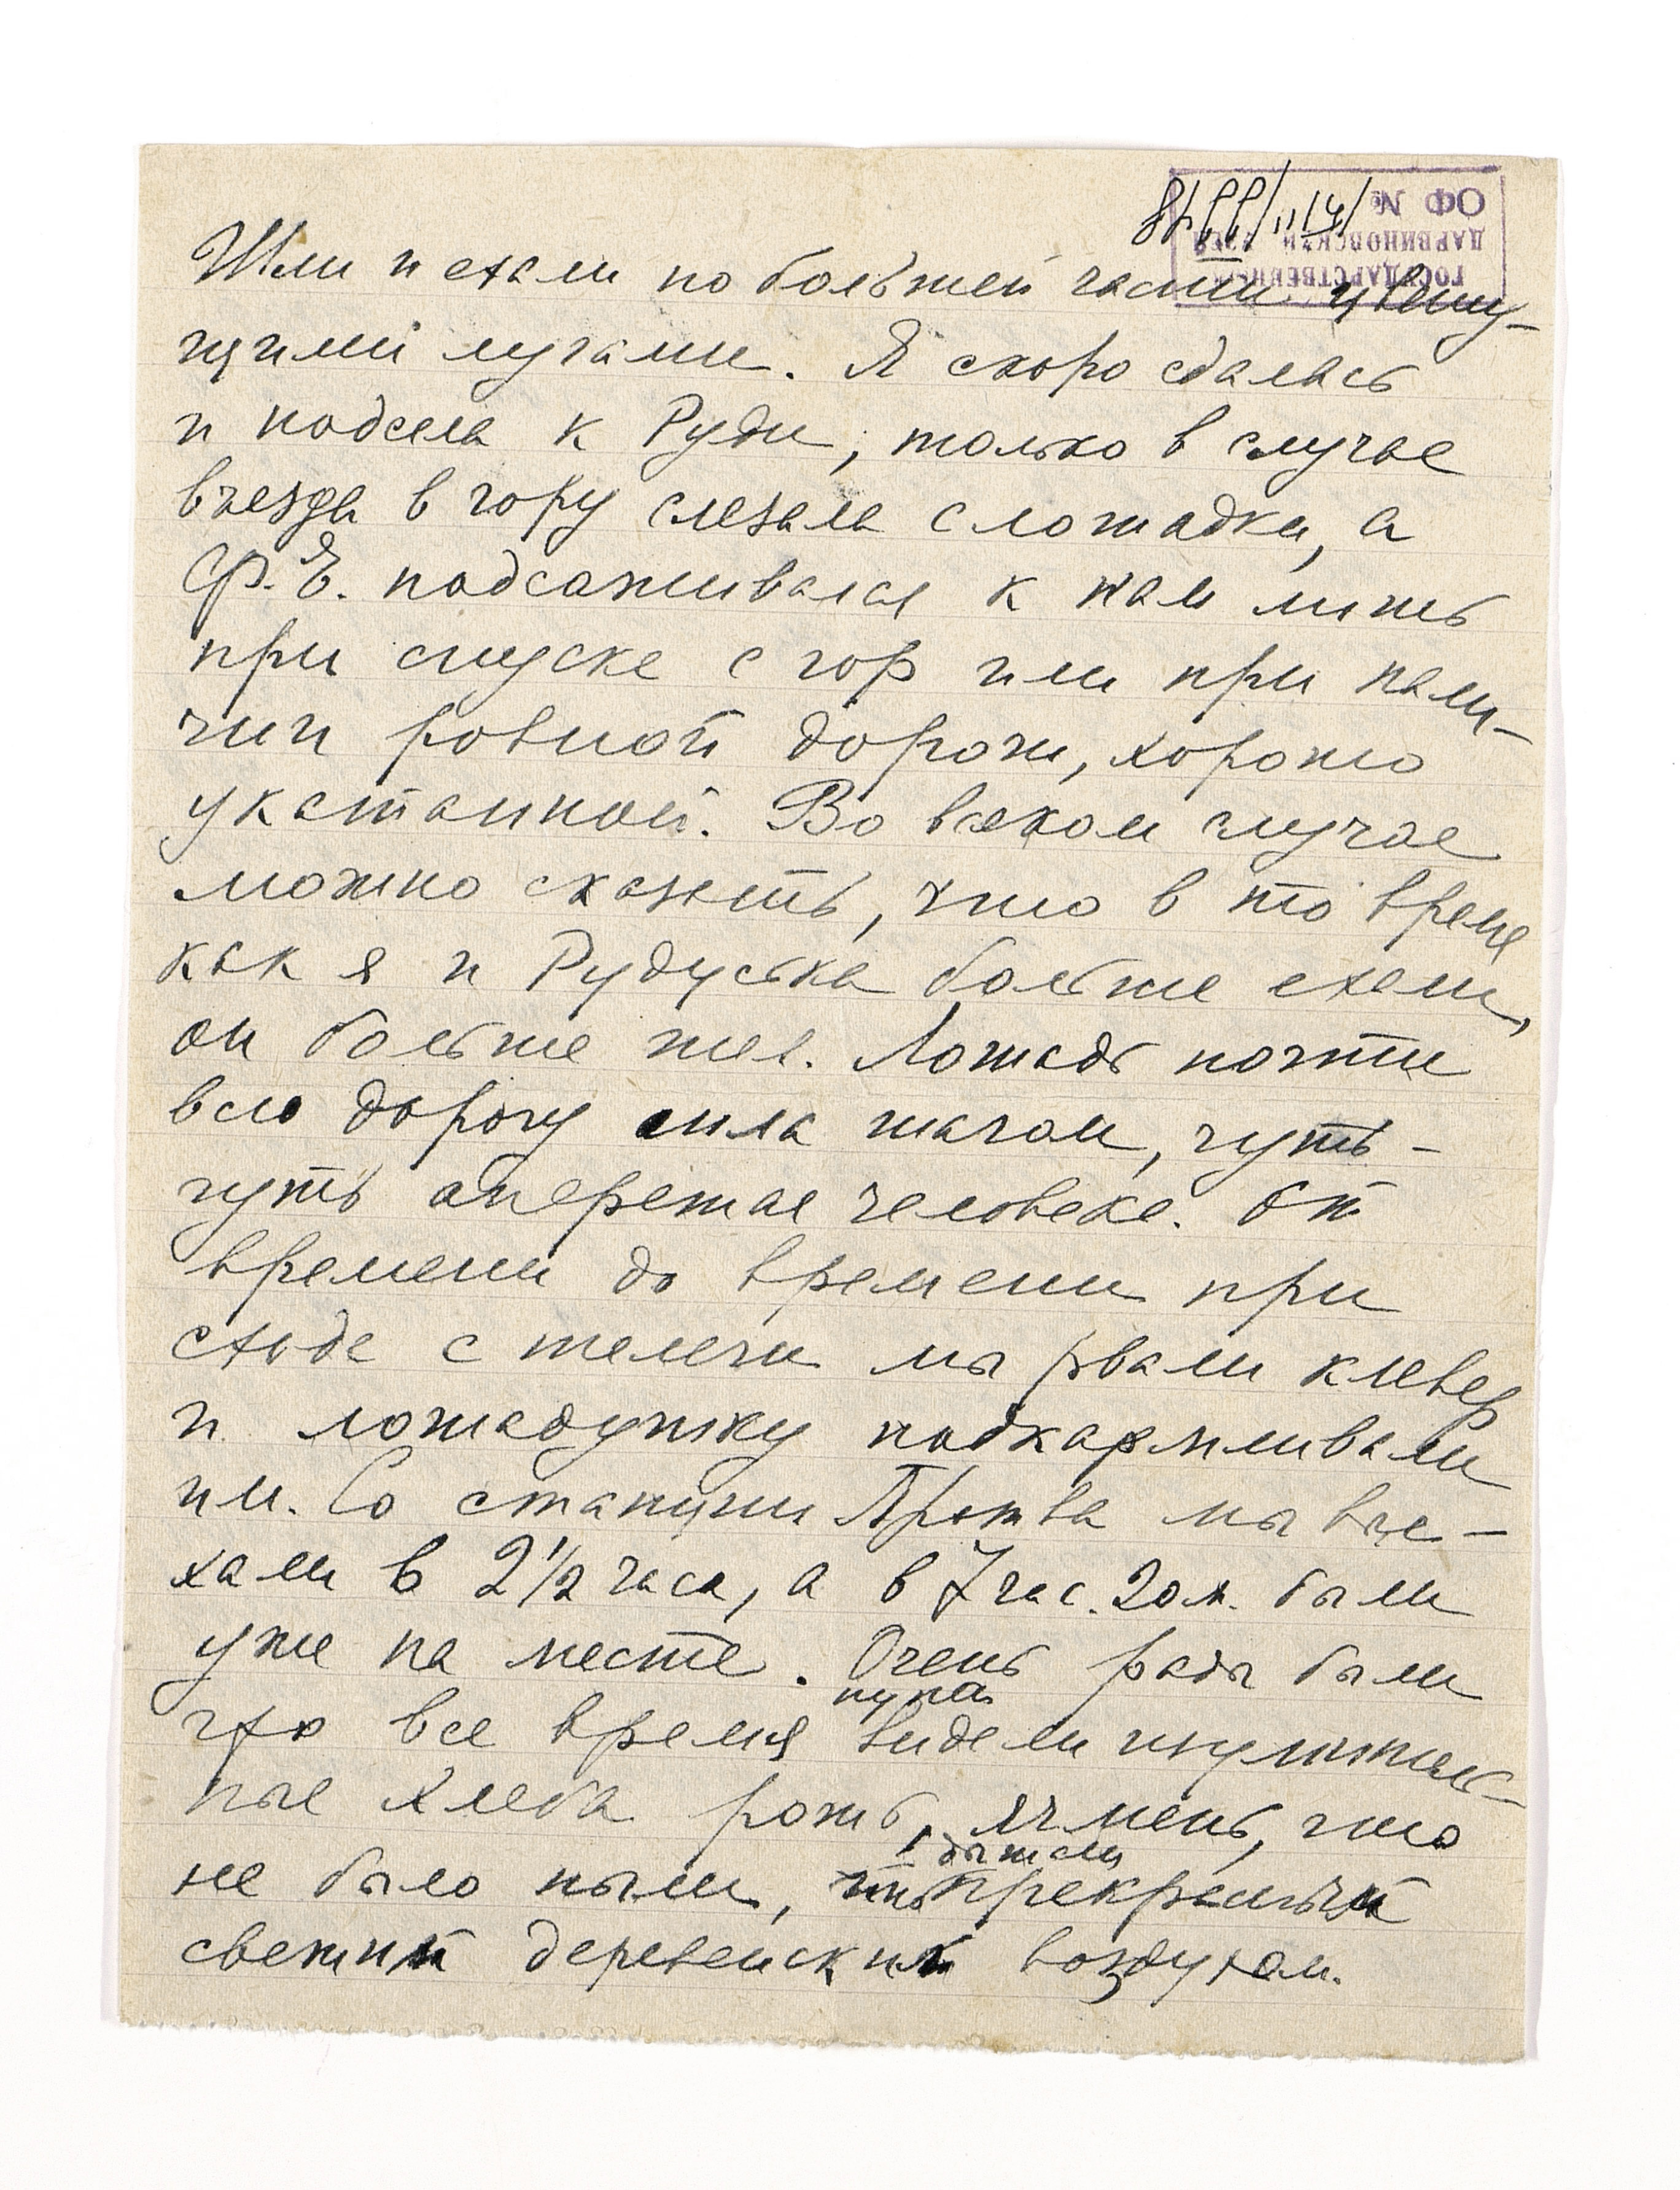 ГОСУДАРСТВЕННЫЙ
ДАРВИНОВСКИЙ МУЗЕЙ
ОФ №
Шли и ехали по большей части цвету-
щими лугами. Я скоро сдалась
и подсела к Руди, только в случае
въезда в гору слезала с лошадки, а
Ф.Е. подсаживался к нам лишь
при спуске с гор или при нали-
чии ровной дороги, хорошо
укатанной. Во всяком случае
можно сказать, что в то время
как я и Рудуська больше ехали,
он больше шел. Лошадь почти
всю дорогу шла шагом, чуть-
чуть опережая человека. От
времени до времени при
сходе с телеги мы рвали клевер
и лошадушку подкармливали
им. Со станции Протва мы вые-
хали в 2 1/2 часа, а в 7 час. 20 м. были
уже на месте. Очень рады были
что все время кругом видели изумитель-
ные хлеба рожь, ячмень, что
не было пыли, дышали прекрасным
свежим деревенским воздухом.